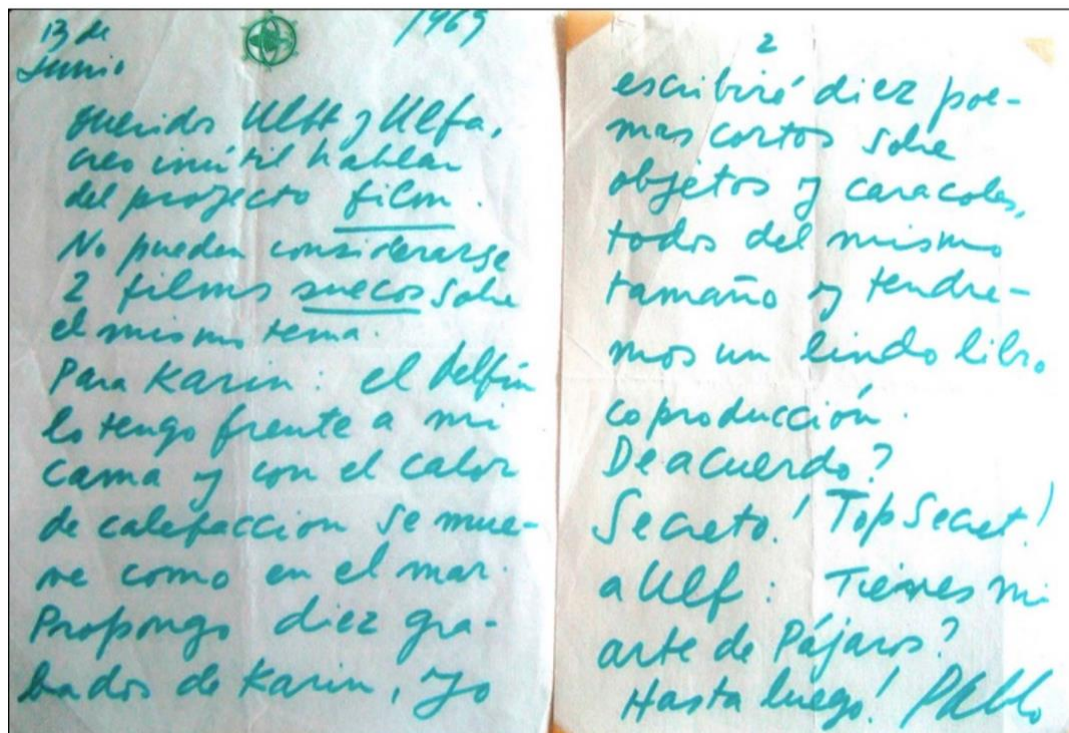 13 de
Junio
1969
Queridos Ulff y Ulfa,
creo inútil hablar
del proyecto film.
No pueden considerarse
2 films suecos sobre
el mismo tema.
Para Karin: el delfín
lo tengo frente a mi
cama y con el calor
de calefaccion se mue-
ve como en el mar.
Propongo diez gra-
bados de Karin, yo
2
escribiré diez poe-
mas cortos sobre
objetos y caracoles,
todos del mismo
tamaño y tendre-
mos un lindo libro
coproducción.
De acuerdo?
Secreto! Top Secret!
a Ulf: Tienes mi
arte de Pájaros?
Hasta luego! Pablo